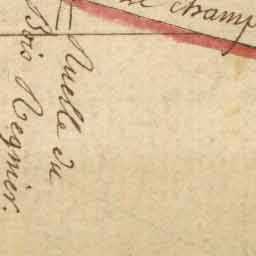 champ
Ruelle du
Bois Regnier.